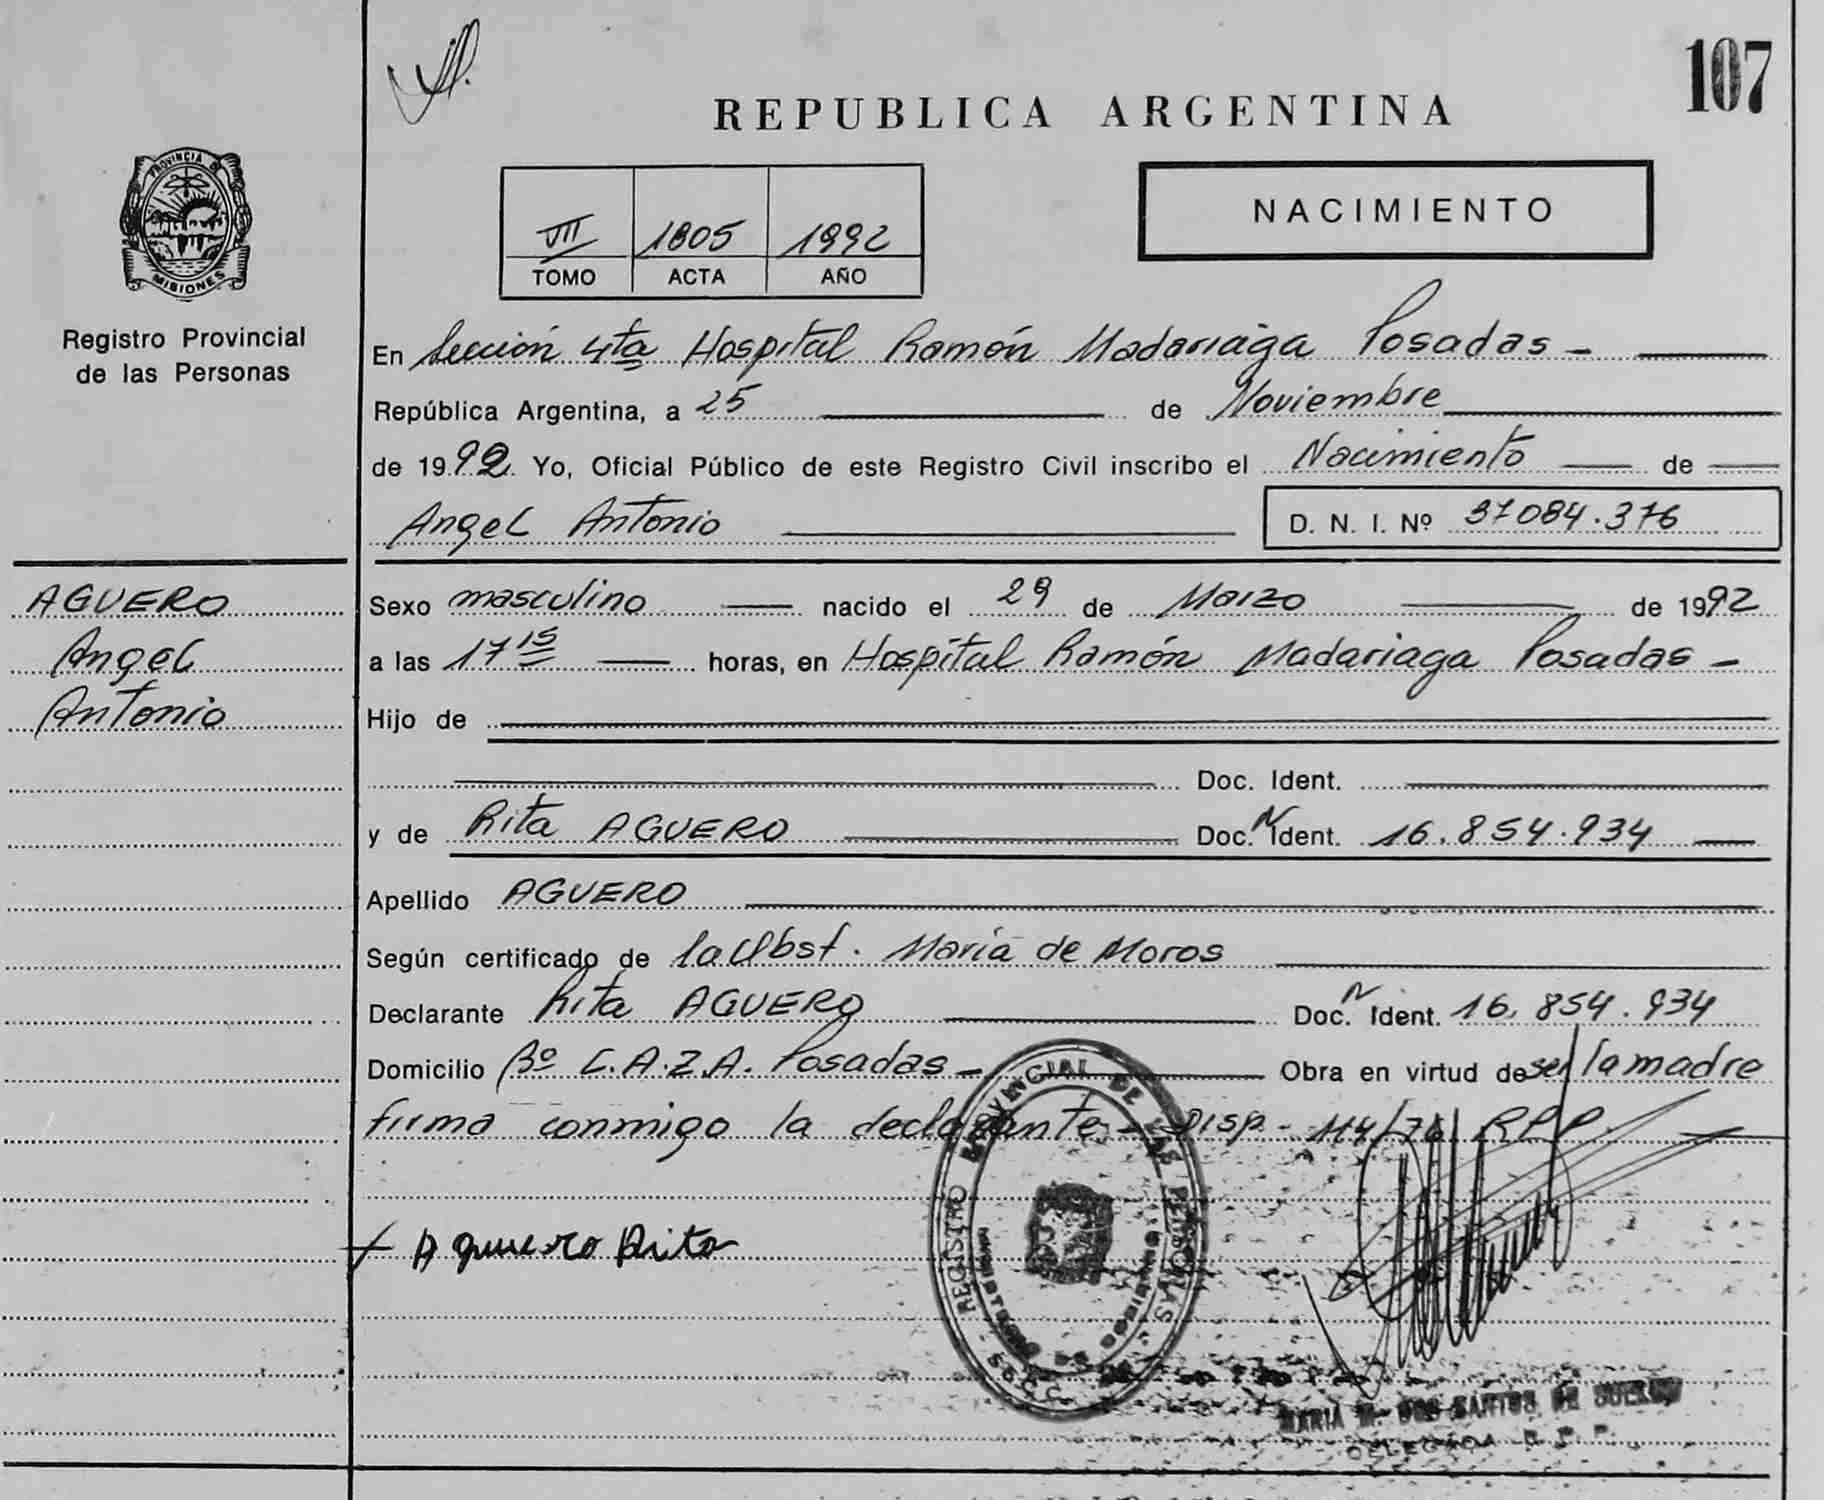 107
REPUBLICA ARGENTINA
PROVINCIA DE
MISIONES
Registro Provincial
de las Personas
VII 1805 1992
TOMO ACTA AÑO
NACIMIENTO
En Sección 4ta Hospital Ramón Madariaga Posadas -
República Argentina, a 25 de Noviembre
de 1992. Yo, Oficial Público de este Registro Civil inscribo el Nacimiento de
Angel Antonio
D. N. I. Nº 37084.376
AGUERO
Angel
Antonio
Sexo masculino nacido el 29 de Marzo de 1992
a las 17 15 horas, en Hospital Ramón Madariaga Posadas -
Hijo de
Doc. Ident.
y de Rita AGUERO Doc. N Ident. 16.854.934
Apellido AGUERO
Según certificado de la Obst. María de Moros
Declarante Rita AGUERO Doc. N Ident. 16.854.934
Domicilio Bº C.A.Z.A. Posadas - Obra en virtud de ser la madre
firma conmigo la declarante - Disp. - 114/78 RPP.
Aguero Rita
REGISTRO PROVINCIAL DE LAS PERSONAS
MARIA M. DOS SANTOS DE
DELEGADA R. P. P.